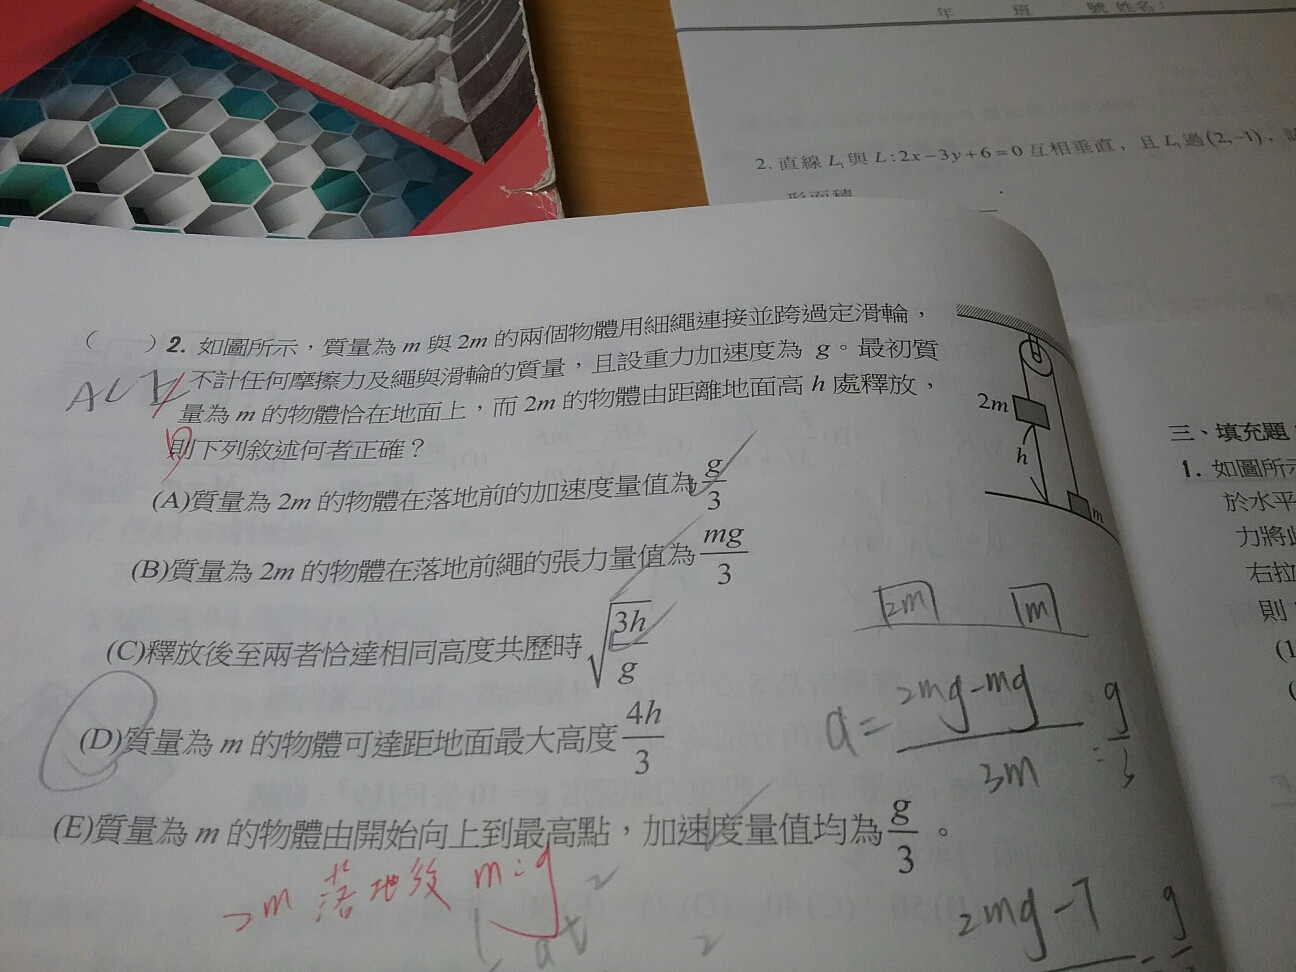 年 班 號 姓名：
2. 直線 L₁ 與 L : 2x − 3y + 6 = 0 互相垂直，且 L₁ 過 (2,−1)，
形面積
( ) 2. 如圖所示，質量為 m 與 2m 的兩個物體用細繩連接並跨過定滑輪，
不計任何摩擦力及繩與滑輪的質量，且設重力加速度為 g。最初質
量為 m 的物體恰在地面上，而 2m 的物體由距離地面高 h 處釋放，
則下列敘述何者正確？
(A)質量為 2m 的物體在落地前的加速度量值為 g/3
(B)質量為 2m 的物體在落地前繩的張力量值為 mg/3
(C)釋放後至兩者恰達相同高度共歷時 √(3h/g)
(D)質量為 m 的物體可達距地面最大高度 4h/3
(E)質量為 m 的物體由開始向上到最高點，加速度量值均為 g/3 。
2m
h
m
2m m
a = 2mg-mg / 3m = g/3
2m 落地後 m : g
2mg-T
三、填充題
1. 如圖所示
於水平
力將此
右拉
則
(1